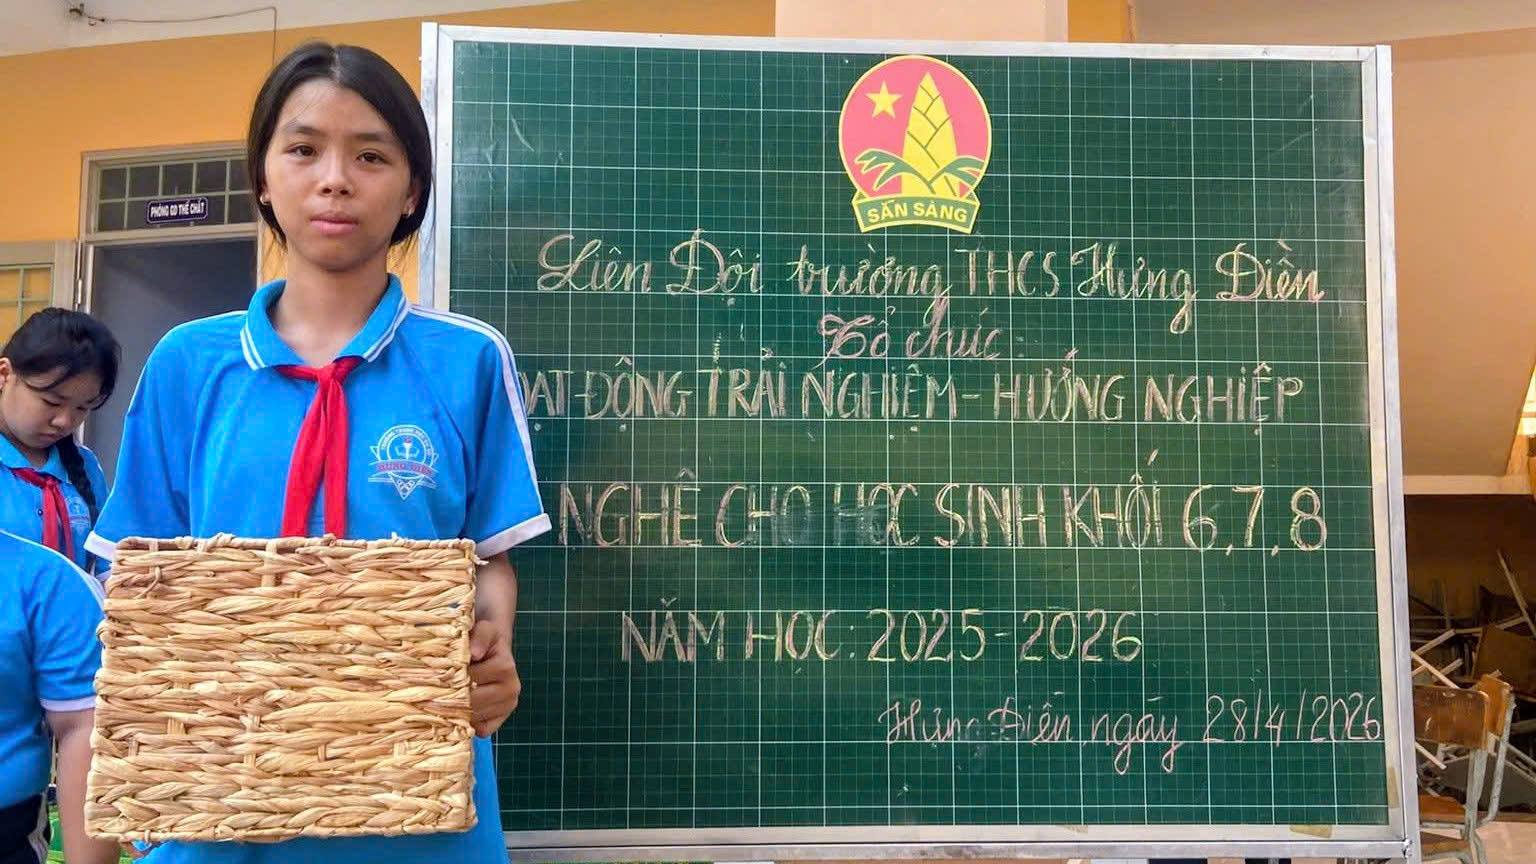 PHÒNG GD THỂ CHẤT
SẴN SÀNG
Liên Đội trường THCS Hưng Điền
Tổ chức
ẠT ĐỘNG TRẢI NGHIỆM - HƯỚNG NGHIỆP
NGHỀ CHO HỌC SINH KHỐI 6,7,8
NĂM HỌC: 2025-2026
Hưng Điền, ngày 28/4/2026
HƯNG ĐIỀN